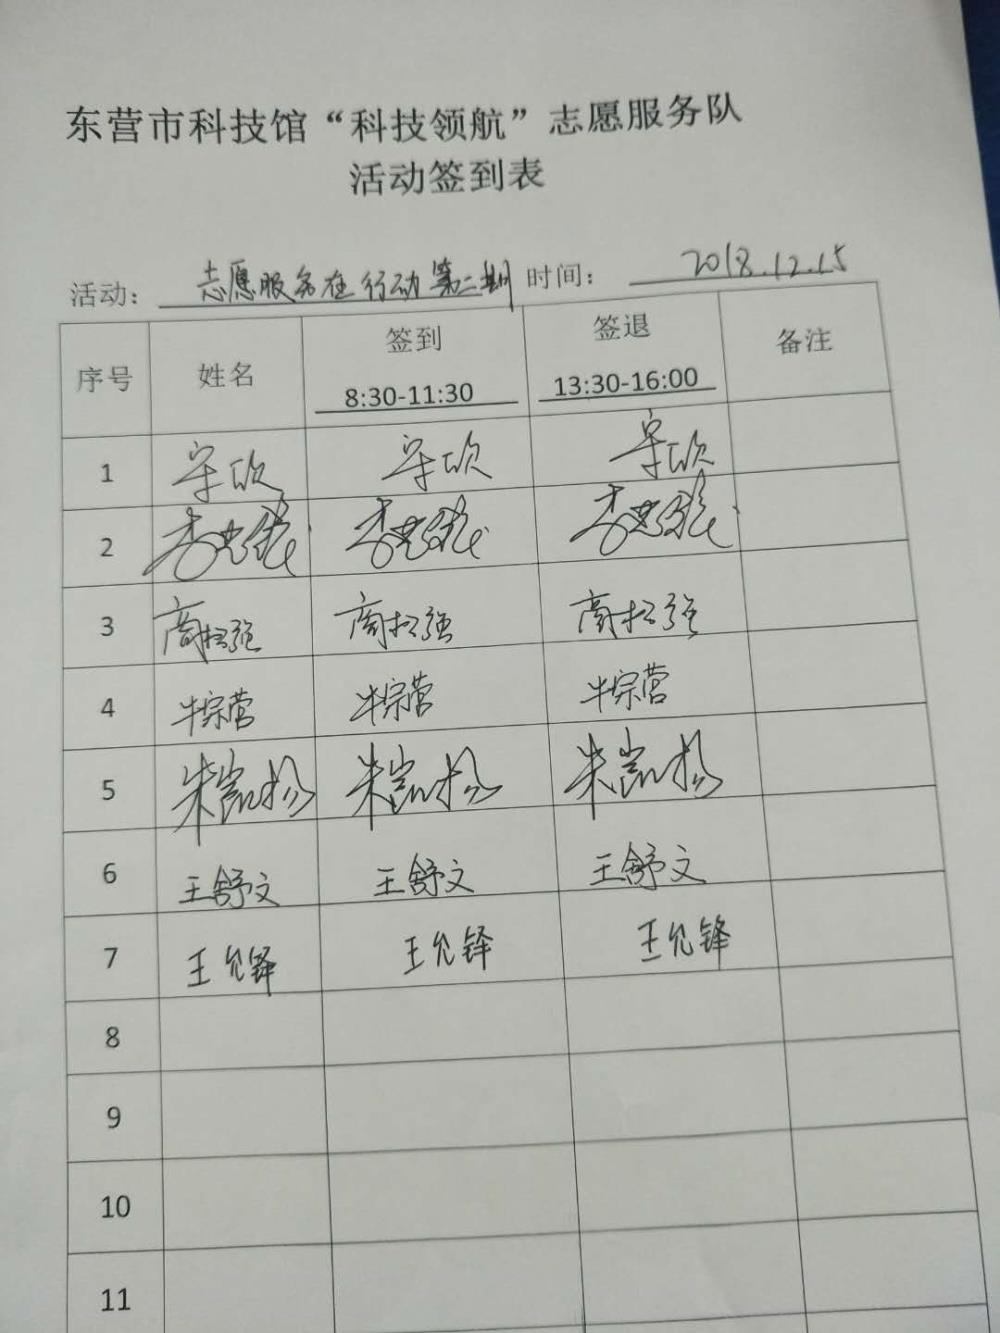 东营市科技馆“科技领航”志愿服务队
活动签到表
活动： 志愿服务在行动第二期 时间： 2018.12.15
序号 姓名 签到 8:30-11:30 签退 13:30-16:00 备注
1
2 李
3 商 强 商 强 商 强
4 牛宗营 牛宗营 牛宗营
5 朱凯杨 朱凯杨 朱凯杨
6 王舒文 王舒文 王舒文
7 王允铎 王允铎 王允铎
8
9
10
11